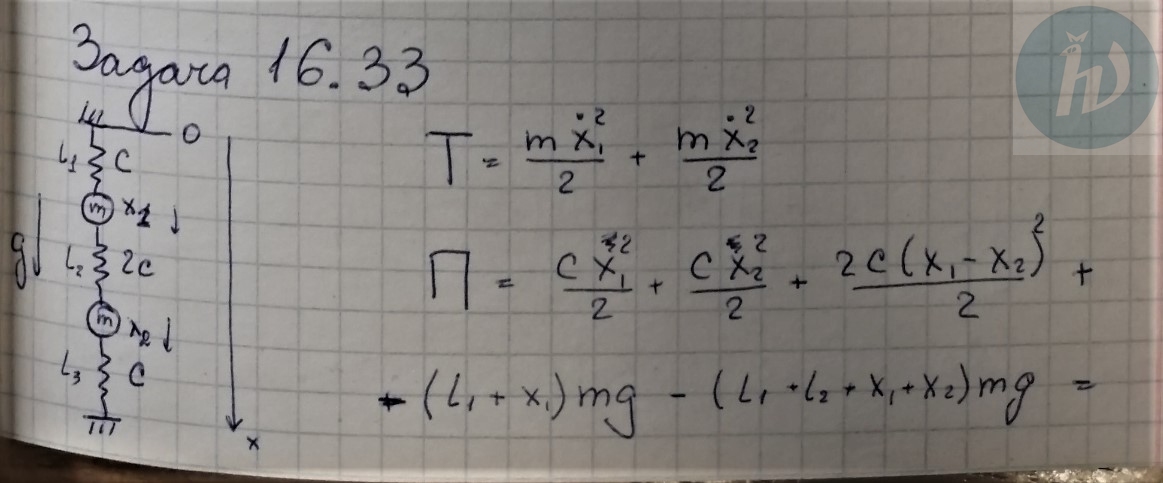 Задача 16.33
O
L₁ C
m x₁
g L₂ 2C
m x₂
L₃ C
x
T = mẋ₁²/2 + mẋ₂²/2
П = Cx₁²/2 + Cx₂²/2 + 2C(x₁-x₂)²/2 +
- (L₁ + x₁)mg - (L₁ + L₂ + x₁ + x₂)mg =